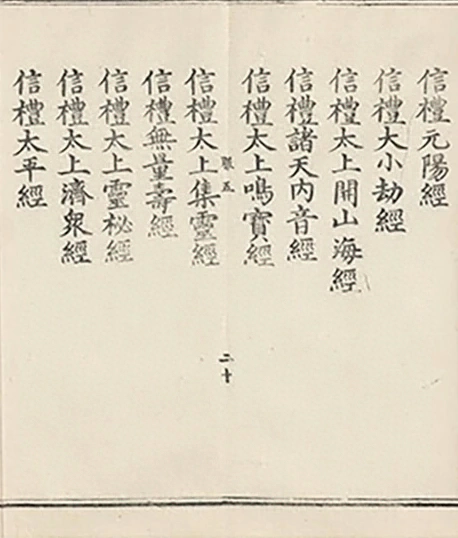 信禮元陽經
信禮大小劫經
信禮太上開山海經
信禮諸天內音經
信禮太上鳴寶經
二十
信禮太上集靈經
信禮無量壽經
信禮太上靈秘經
信禮太上濟衆經
信禮太平經